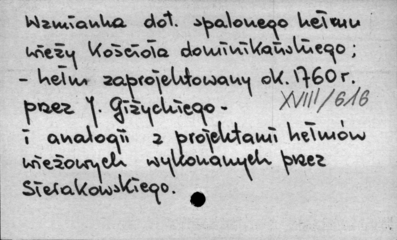 Wzmianka dot. spalonego hełmu
wieży Kościoła dominikańskiego;
- hełm zaprojektowany ok. 1760 r.
przez J. Giżyckiego -
XVIII/616
i analogii z projektami hełmów
wieżowych wykonanych przez
Sierakowskiego.